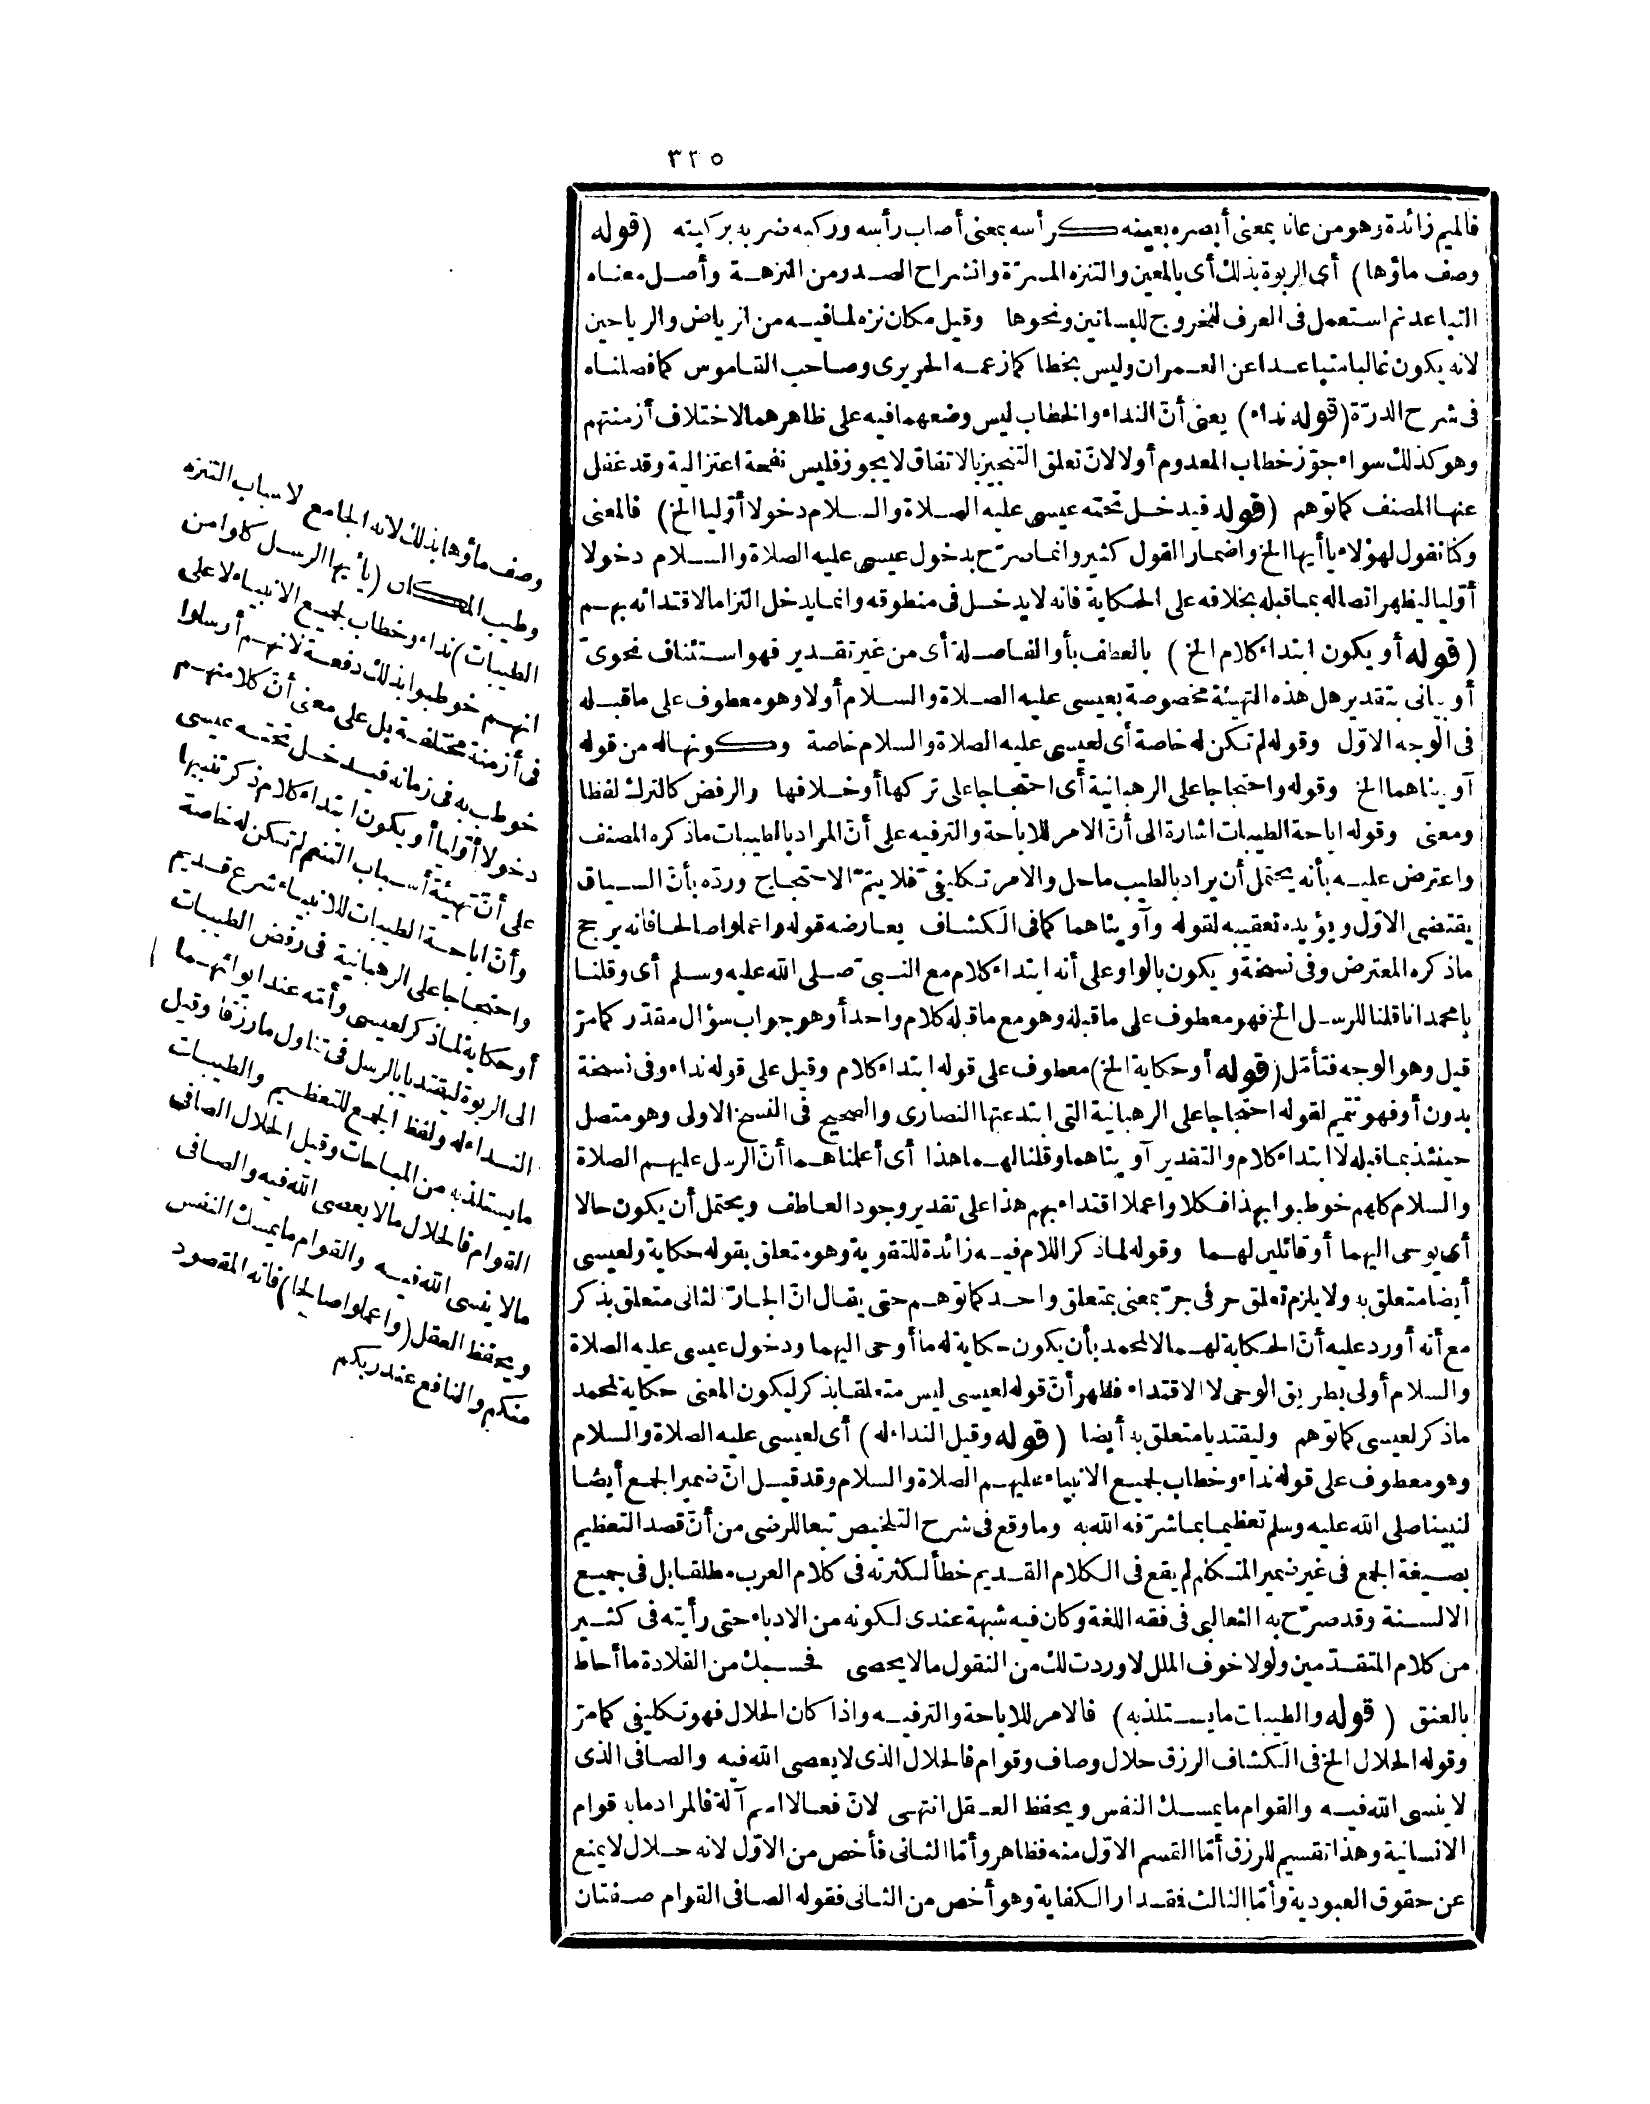 ٣٣٥
فالميم زائدة وهو من عانه بمعنى أبصره بعينه كرأسه بمعنى أصاب رأسه وركبه ضربه بركبته (قوله
وصف ماؤها) أى الربوة بذلك أى بالمعين والتنزه المسرّة وانشراح الصدر من النزهة وأصل معناه
التباعد ثم استعمل فى العرف للخروج للبساتين ونحوها وقيل مكان نزه لما فيه من الرياض والرياحين
لانه يكون غالبا متباعدا عن العمران وليس بخطا كما زعمه الحريرى وصاحب القاموس كما فصلناه
فى شرح الدرّة (قوله نداء) يعنى أنّ النداء والخطاب ليس وضعهما فيه على ظاهرهما لاختلاف أزمنتهم
وهو كذلك سواء جوّز خطاب المعدوم أولا لانّ تعلق التنجيز بالاتفاق لا يجوز فليس نفحة اعتزالية وقد غفل
عنها المصنف كما توهم (قوله فيدخل تحته عيسى عليه الصلاة والسلام دخولا أوّليا الخ) فالمعنى
وكنا نقول لهؤلاء يا أيها الخ واضمار القول كثير وانما صرّح بدخول عيسى عليه الصلاة والسلام دخولا
أوّليا ليظهر اتصاله بما قبله بخلافه على الحكاية فانه لا يدخل فى منطوقه وانما يدخل التزاما لاقتدائه بهم
(قوله أو يكون ابتداء كلام الخ) بالعطف بأو الفاصلة أى من غير تقدير فهو استئناف نحوىّ
أو بيانى بتقدير هل هذه التهيئة مخصوصة بعيسى عليه الصلاة والسلام أولا وهو معطوف على ما قبله
فى الوجه الاوّل وقوله لم تكن له خاصة أى لعيسى عليه الصلاة والسلام خاصة وكونها له من قوله
آويناهما الخ وقوله واحتجاجا على الرهبانية أى احتجاجا على تركها أو خلافها والرفض كالترك لفظا
ومعنى وقوله اباحة الطيبات اشارة الى أنّ الامر للاباحة والترفيه على أنّ المراد بالطيبات ما ذكره المصنف
واعترض عليه بأنه يحتمل أن يراد بالطيب ما حل والامر تكليفىّ فلا يتمّ الاحتجاج وردّه بأنّ السياق
يقتضى الاوّل ويؤيده تعقيبه لقوله وآويناهما كما فى الكشاف يعارضه قوله واعملوا صالحا فانه يرجح
ما ذكره المعترض وفى نسخة ويكون بالواو على أنه ابتداء كلام مع النبىّ صلى الله عليه وسلم أى وقلنا
يا محمد انا قلنا للرسل الخ فهو معطوف على ما قبله وهو مع ما قبله كلام واحد أو هو جواب سؤال مقدّر كما مرّ
قيل وهو الوجه فتأمّل (قوله أو حكاية الخ) معطوف على قوله ابتداء كلام وقيل على قوله نداء وفى نسخة
بدون أو فهو تتميم لقوله احتجاجا على الرهبانية التى ابتدعتها النصارى والصحيح فى النسخ الاولى وهو متصل
حينئذ بما قبله لا ابتداء كلام والتقدير آويناهما وقلنا لهما هذا أى أعلمناهما أنّ الرسل عليهم الصلاة
والسلام كلهم خوطبوا بهذا فكلا واعملا اقتداء بهم هذا على تقدير وجود العاطف ويحتمل أن يكون حالا
أى يوحى اليهما أو قائلين لهما وقوله لما ذكر اللام فيه زائدة للتقوية وهو متعلق بقوله حكاية ولعيسى
أيضا متعلق به ولا يلزم تعلق حرفى جرّ بمعنى بمتعلق واحد كما توهم حتى يقال انّ الجارّ الثانى متعلق بذكر
مع أنه أورد عليه أنّ الحكاية لهما لا لمحمد بأن يكون حكاية له ما أوحى اليهما ودخول عيسى عليه الصلاة
والسلام أولى بطريق الوحى لا الاقتداء فظهر أنّ قوله لعيسى ليس متعلقا بذكر ليكون المعنى حكاية لمحمد
ما ذكر لعيسى كما توهم وليقتديا متعلق به أيضا (قوله وقيل النداء له) أى لعيسى عليه الصلاة والسلام
وهو معطوف على قوله نداء وخطاب لجميع الانبياء عليهم الصلاة والسلام وقد قيل انّ ضمير الجمع أيضا
لنبينا صلى الله عليه وسلم تعظيما بما شرّفه الله به وما وقع فى شرح التلخيص تبعا للرضى من أنّ قصد التعظيم
بصيغة الجمع فى غير ضمير المتكلم لم يقع فى الكلام القديم خطأ لكثرته فى كلام العرب مطلقا بل فى جميع
الالسنة وقد صرّح به الثعالبى فى فقه اللغة وكان فيه شبهة عندى لكونه من الادباء حتى رأيته فى كثير
من كلام المتقدّمين ولولا خوف الملل لاوردت لك من النقول ما لا يحصى فحسبك من القلادة ما أحاط
بالعنق (قوله والطيبات ما يستلذ به) فالامر للاباحة والترفيه واذا كان الحلال فهو تكليفى كما مرّ
وقوله الحلال الخ فى الكشاف الرزق حلال وصاف وقوام فالحلال الذى لا يعصى الله فيه والصافى الذى
لا ينسى الله فيه والقوام ما يمسك النفس ويحفظ العقل انتهى لانّ فعالا اسم آلة فالمراد ما به قوام
الانسانية وهذا تقسيم للرزق أمّا القسم الاوّل منه فظاهر وأمّا الثانى فأخص من الاوّل لانه حلال لا يمنع
عن حقوق العبودية وأمّا الثالث فقدار الكفاية وهو أخص من الثانى فقوله الصافى القوام صفتان
وصف ماؤها بذلك لانه الجامع لاسباب التنزه
وطيب المكان (يا أيها الرسل كلوا من
الطيبات) نداء وخطاب لجميع الانبياء لا على
انهم خوطبوا بذلك دفعة لانهم أرسلوا
فى أزمنة مختلفة بل على معنى أنّ كلا منهم
خوطب به فى زمانه فيدخل تحته عيسى
دخولا أوّليا أو يكون ابتداء كلام ذكر تنبيها
على أنّ تهيئة أسباب التنعم لم تكن له خاصة
وأنّ اباحة الطيبات للانبياء شرع قديم
واحتجاجا على الرهبانية فى رفض الطيبات
أو حكاية لما ذكر لعيسى وأمّه عند ايوائهما
الى الربوة ليقتديا بالرسل فى تناول ما رزقا وقيل
النداء له ولفظ الجمع للتعظيم والطيبات
ما يستلذ به من المباحات وقيل الحلال الصافى
القوام فالحلال ما لا يعصى الله فيه والصافى
ما لا ينسى الله فيه والقوام ما يمسك النفس
ويحفظ العقل (واعملوا صالحا) فانه المقصود
منكم والنافع عند ربكم